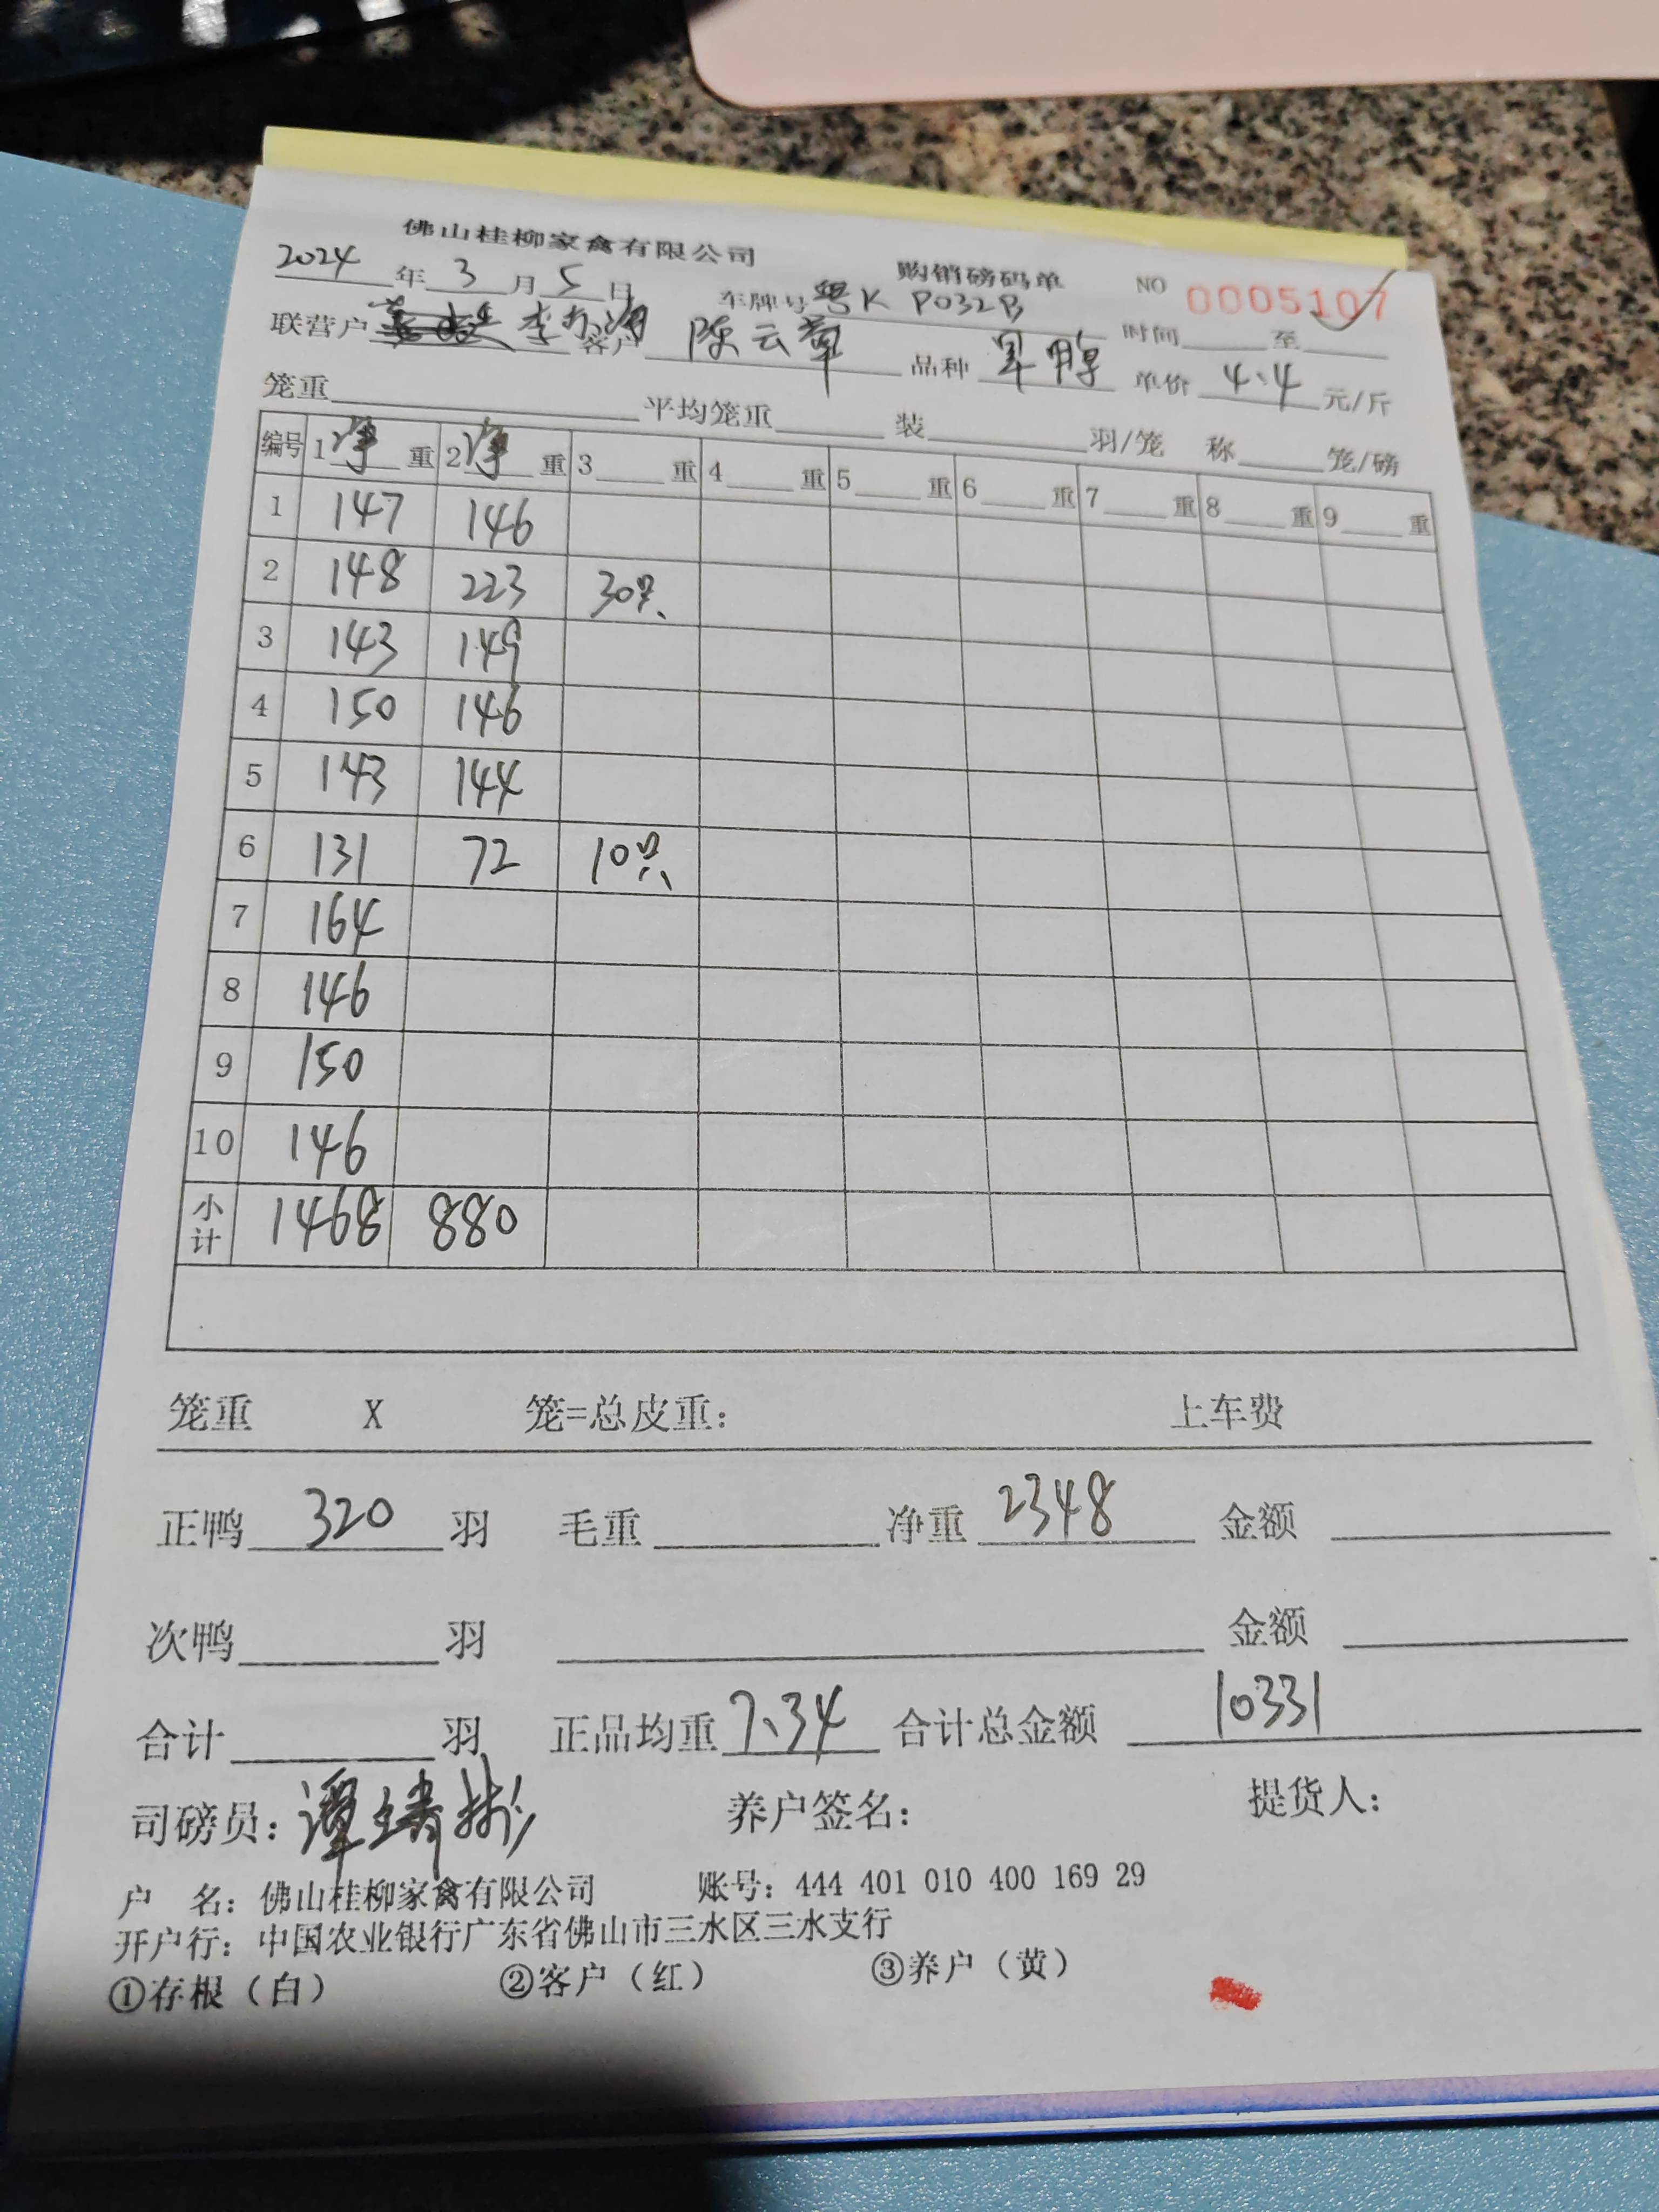 佛山桂柳家禽有限公司 购销磅码单 NO 0005107
2024年3月5日 车牌号粤K P032B 时间 至
联营户 李 客户 陈云章 品种 单价 4.4 元/斤
笼重 平均笼重 装 羽/笼 称 笼/磅
编号 1净重 2净重 3 重 4 重 5 重 6 重 7 重 8 重 9 重
1 147 146
2 148 223 30只
3 143 149
4 150 146
5 143 144
6 131 72 10只
7 164
8 146
9 150
10 146
小计 1468 880
笼重 X 笼=总皮重: 上车费
正鸭 320 羽 毛重 净重 2348 金额
次鸭 羽 金额
合计 羽 正品均重 7.34 合计总金额 10331
司磅员: 谭 彬 养户签名: 提货人:
户 名: 佛山桂柳家禽有限公司 账号: 444 401 010 400 169 29
开户行: 中国农业银行广东省佛山市三水区三水支行
①存根(白) ②客户(红) ③养户(黄)